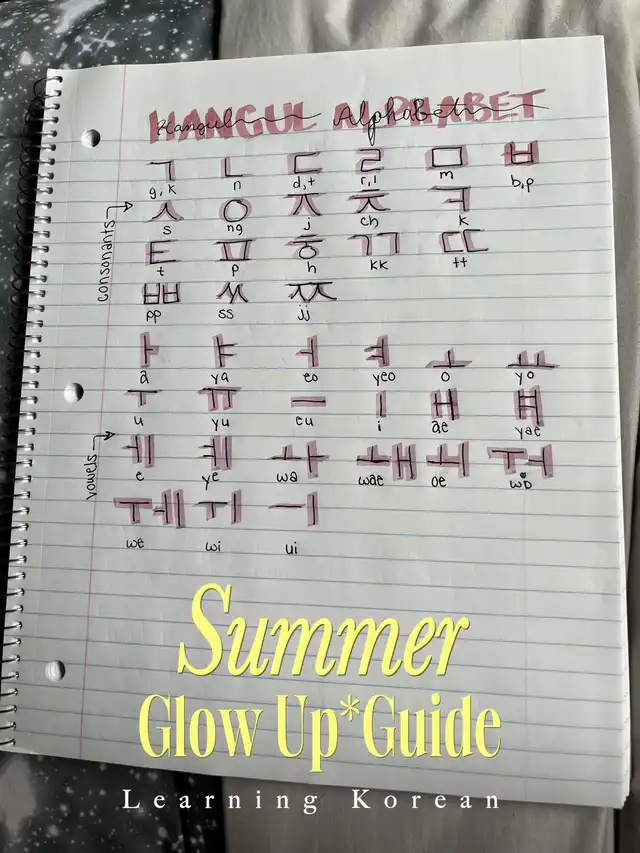 HANGUL ALPHABET
Hangul Alphabet
consonants
ㄱ ㄴ ㄷ ㄹ ㅁ ㅂ
g, k n d,t r,l m b,p
ㅅ ㅇ ㅈ ㅊ ㅋ
s ng j ch k
ㅌ ㅍ ㅎ ㄲ ㄸ
t p h kk tt
ㅃ ㅆ ㅉ
pp ss jj
vowels
ㅏ ㅑ ㅓ ㅕ ㅗ ㅛ
a ya eo yeo o yo
ㅜ ㅠ ㅡ ㅣ ㅐ ㅒ
u yu eu i ae yae
ㅔ ㅖ ㅘ ㅙ ㅚ ㅝ
e ye wa wae oe wo
ㅞ ㅟ ㅢ
we wi ui
Summer
Glow Up*Guide
Learning Korean